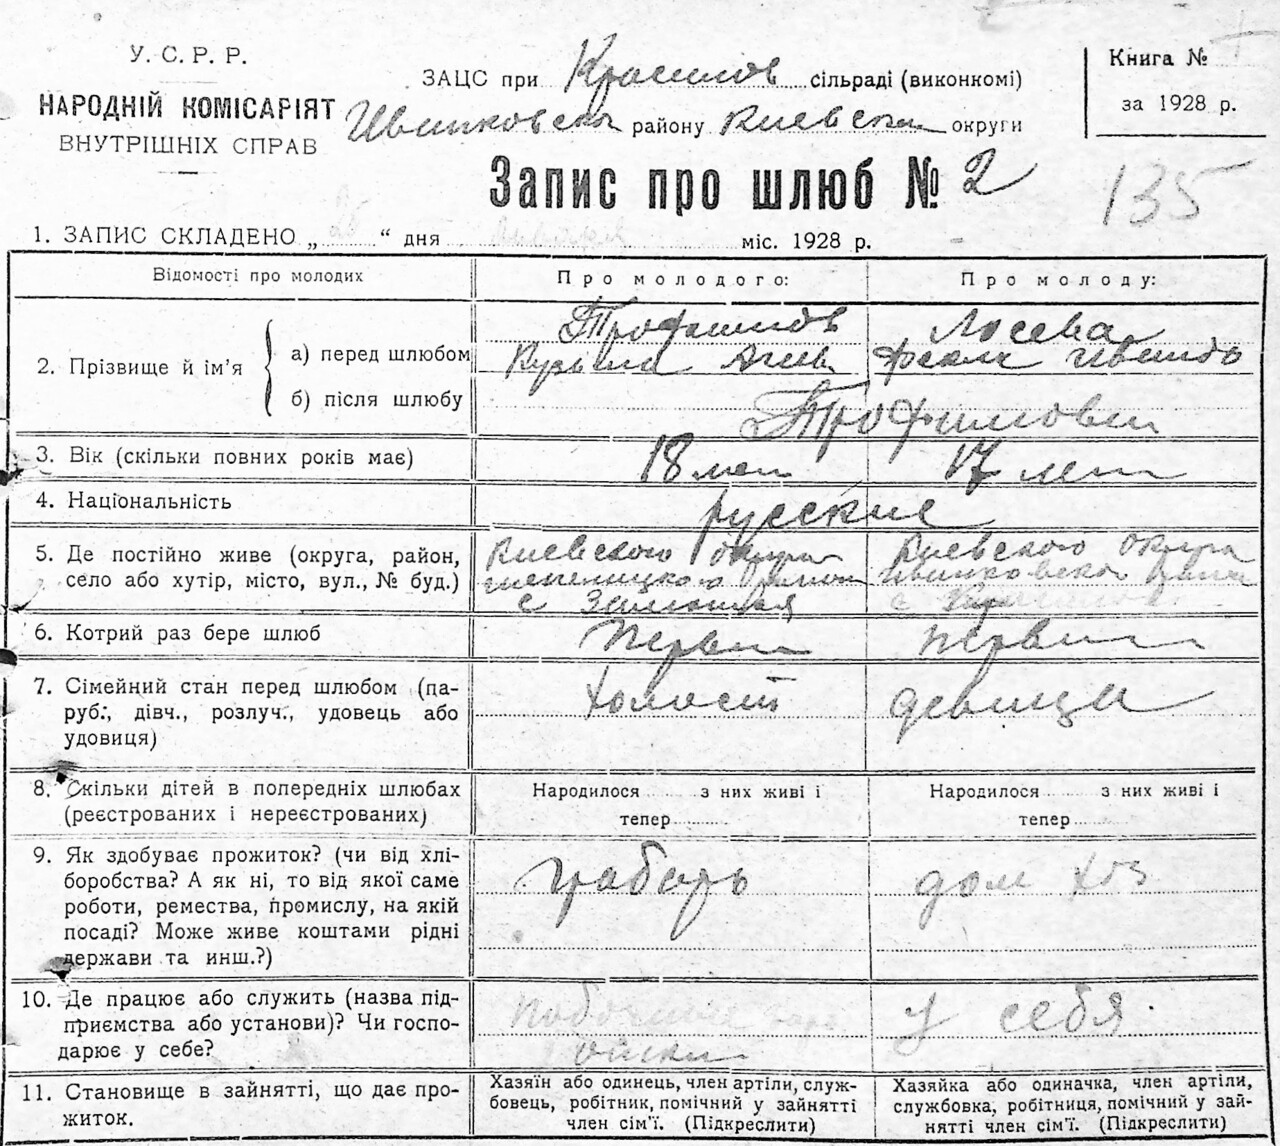 У. С. Р. Р.
НАРОДНІЙ КОМІСАРІЯТ
ВНУТРІШНІХ СПРАВ
ЗАЦС при Красилов сільраді (виконкомі)
району Киевска округи
Книга №
за 1928 р.
Запис про шлюб № 2
135
1. ЗАПИС СКЛАДЕНО „ 26 “ дня января міс. 1928 р.
Відомості про молодих
Про молодого:
Про молоду:
2. Прізвище й ім’я
а) перед шлюбом
б) після шлюбу
Трофимов
Кузьма
Лосева
Фекла
Трофимови
3. Вік (скільки повних років має)
18 лет
17 лет
4. Національність
русские
5. Де постійно живе (округа, район,
село або хутір, місто, вул., № буд.)
Киевского округа
с
Киевского округа
с
6. Котрий раз бере шлюб
Первый
первый
7. Сімейний стан перед шлюбом (па-
руб., дівч., розлуч., удовець або
удовиця)
холост
девица
8. Скільки дітей в попередніх шлюбах
(реєстрованих і нереєстрованих)
Народилося з них живі і
тепер
Народилося з них живі і
тепер
9. Як здобуває прожиток? (чи від хлі-
боробства? А як ні, то від якої саме
роботи, ремества, промислу, на якій
посаді? Може живе коштами рідні
держави та инш.?)
грабарь
дом хоз
10. Де працює або служить (назва під-
приємства або установи)? Чи госпо-
дарює у себе?
у себя
11. Становище в зайнятті, що дає про-
житок.
Хазяїн або одинець, член артіли, служ-
бовець, робітник, помічний у зайнятті
член сім’ї. (Підкреслити)
Хазяйка або одиначка, член артіли,
службовка, робітниця, помічний у зай-
нятті член сім’ї. (Підкреслити)